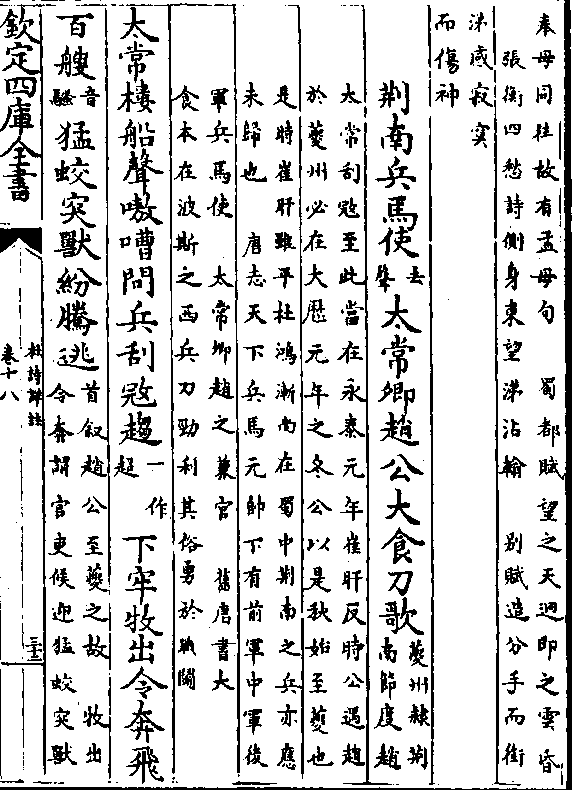 奉母同往故有孟母句　蜀都賦望之天迥即之雲昏
張衡四愁詩側身東望涕沾翰　别賦造分手而銜
涕感寂寞
而傷神
荆南兵馬使去聲太常卿趙公大食刀歌夔州隸荆南節度趙
太常刮寇至此當在永泰元年崔旰反時公遇趙
於夔州必在大厯元年之冬公以是秋始至夔也
是時崔旰雖平杜鴻漸尚在蜀中荆南之兵亦應
未歸也　唐志天下兵馬元帥下有前軍中軍後
軍兵馬使　太常卿趙之兼官　舊唐書大
食本在波斯之西兵刀勁利其俗勇於戰鬬
太常樓船聲嗷嘈問兵刮寇趨一作趍下牢牧出令奔飛
百艘音騷猛蛟突獸紛騰逃首叙趙公至夔之故　牧出令奔謂官吏候迎猛蛟突獸
欽定四庫全書
杜詩詳註
卷十八
三十三